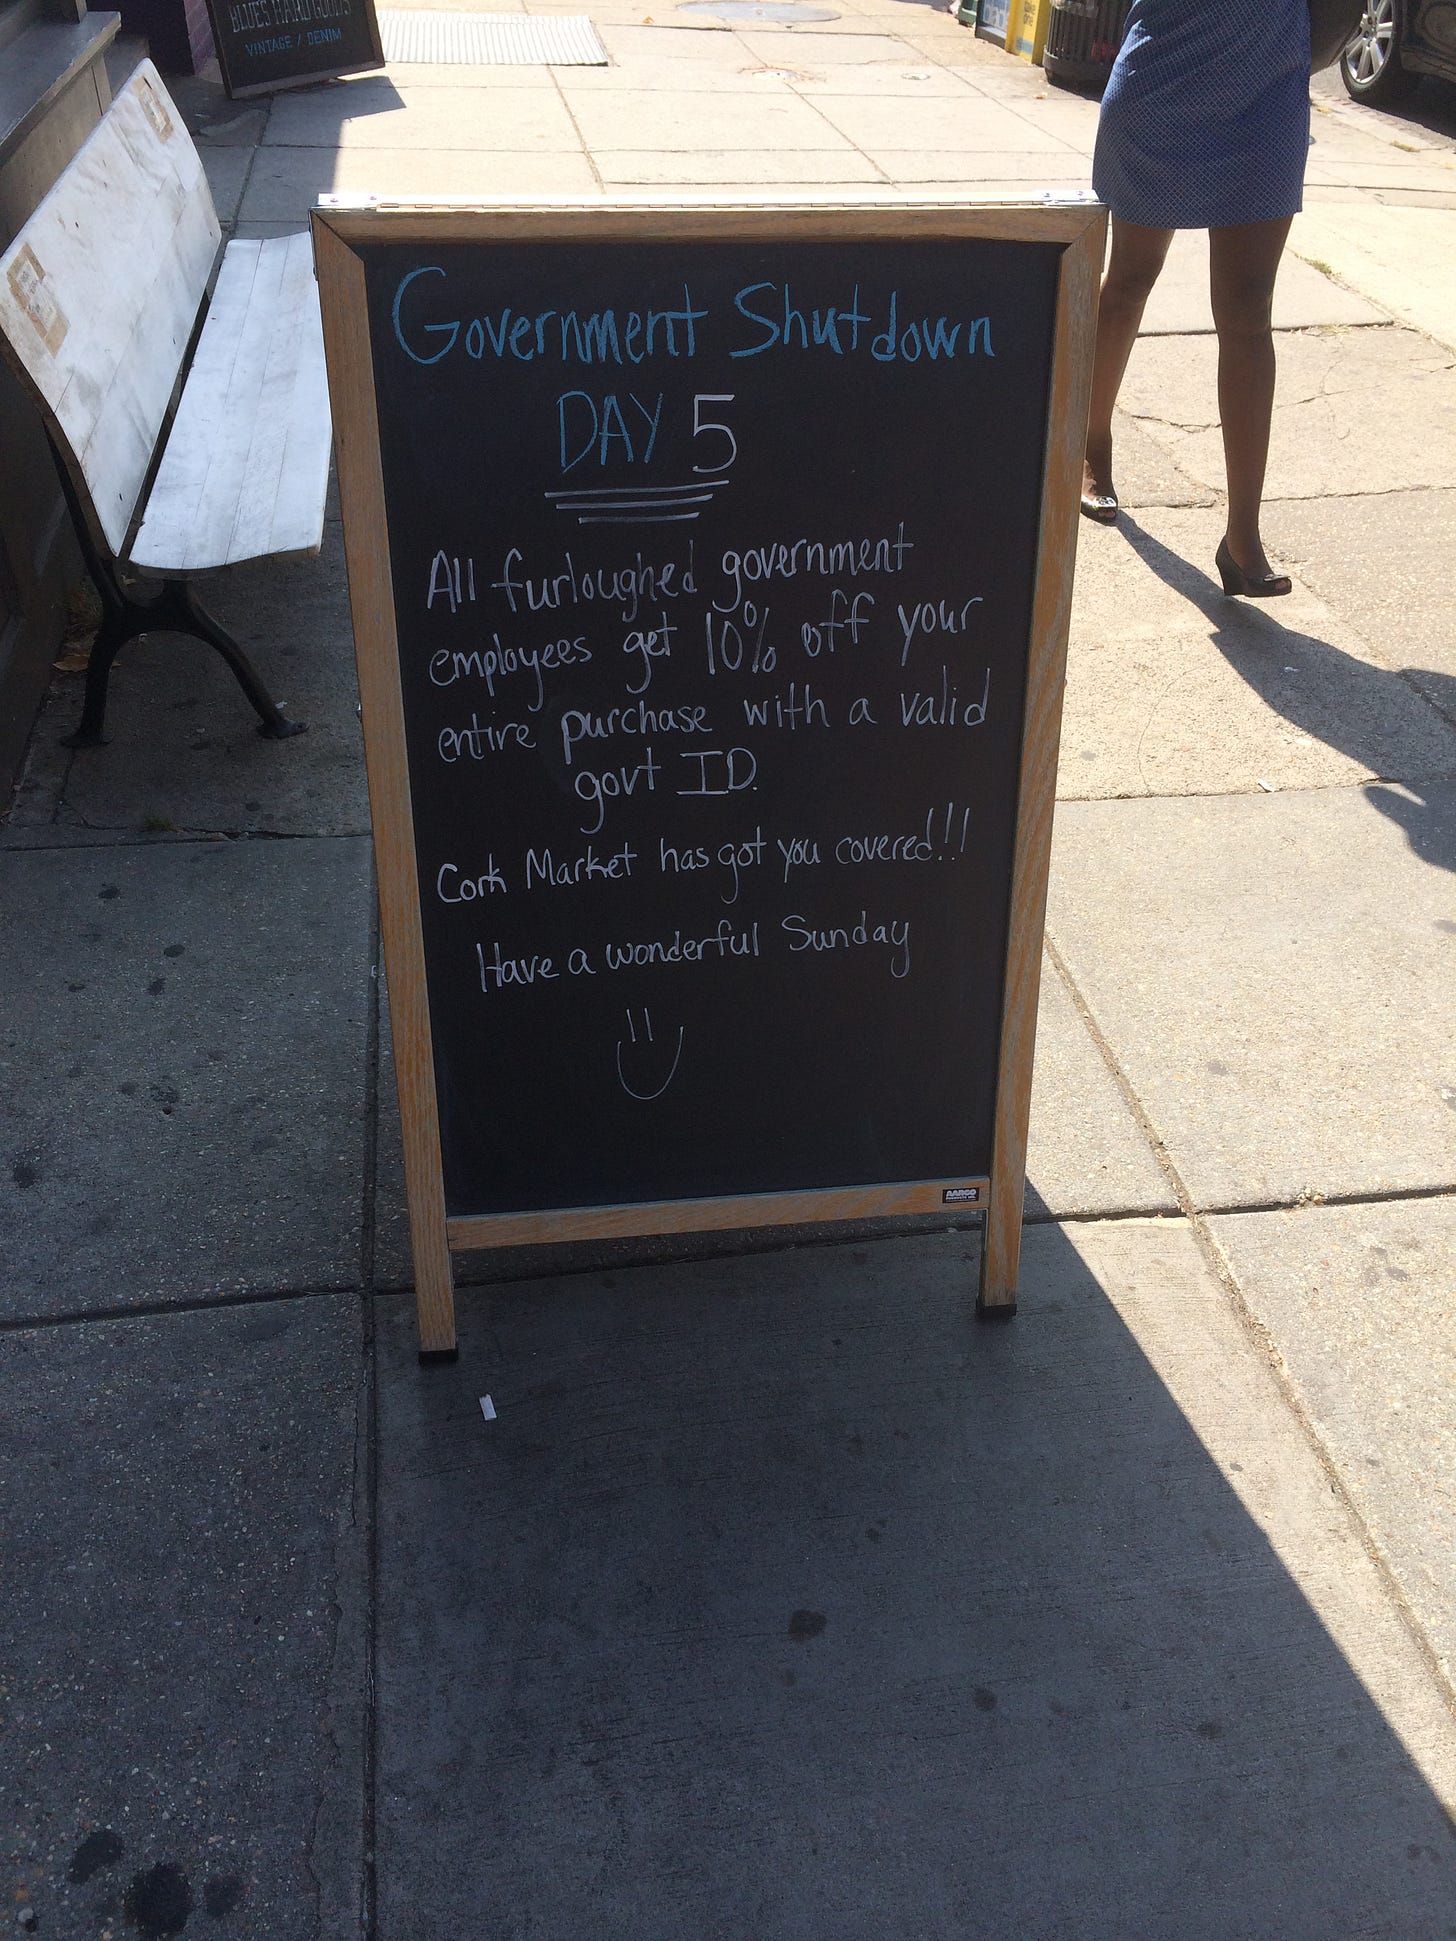 BLUES HARD GOODS
VINTAGE / DENIM
Government Shutdown
DAY 5
All furloughed government
employees get 10% off your
entire purchase with a valid
govt ID.
Cork Market has got you covered!!!
Have a wonderful Sunday
AARCO